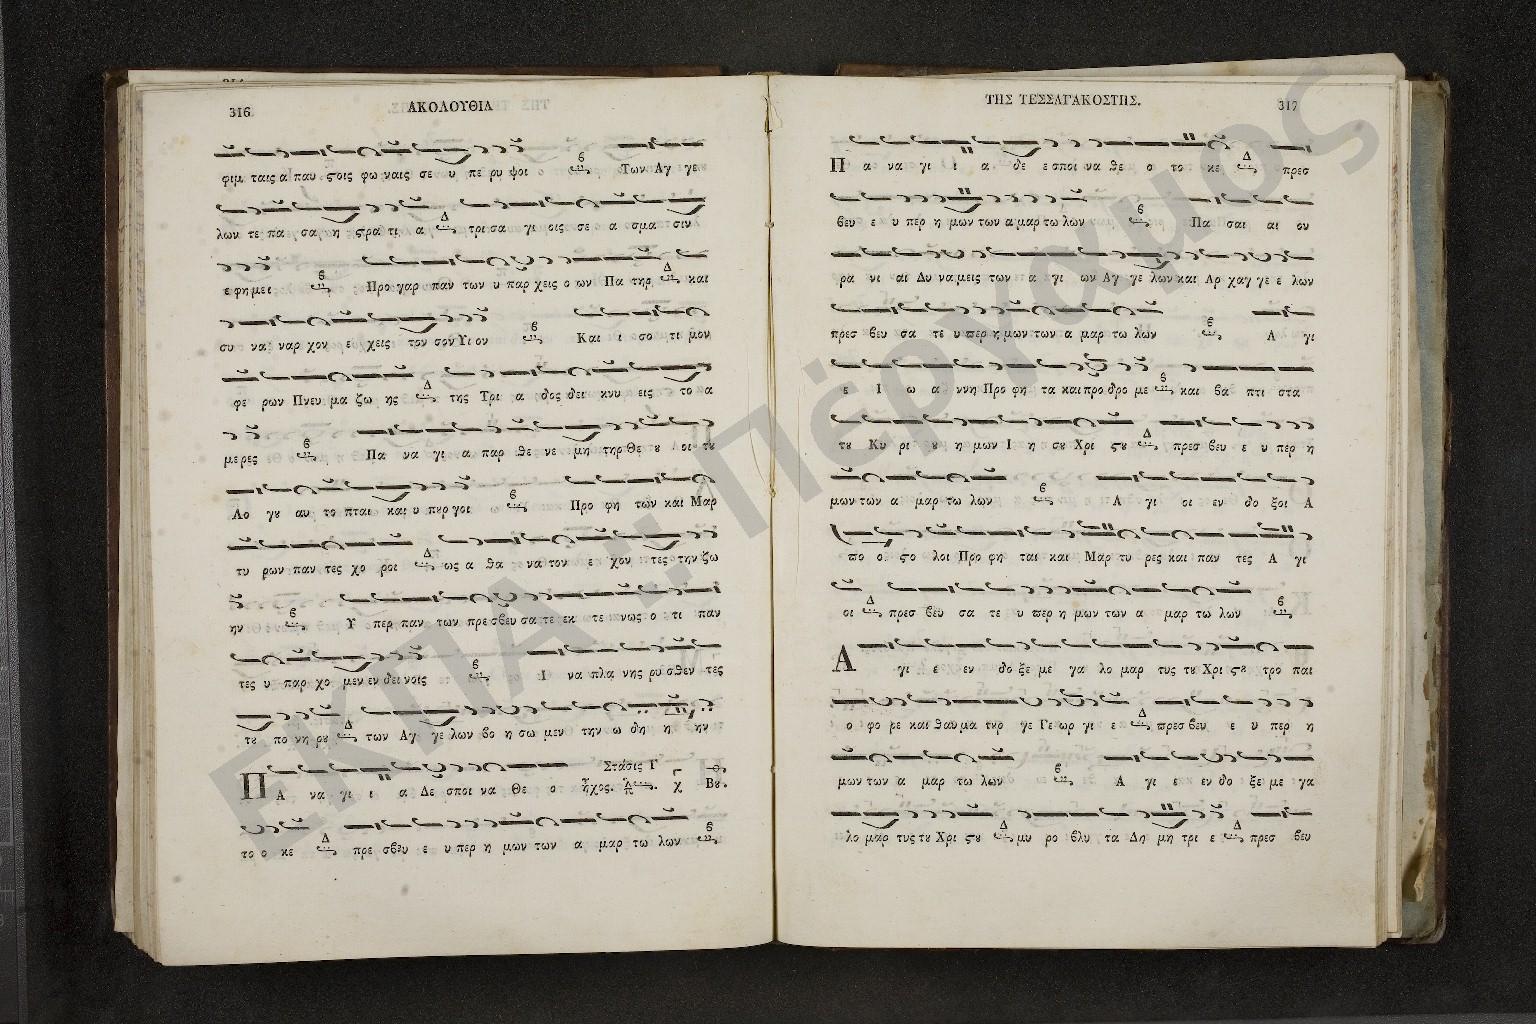 316
ΑΚΟΛΟΥΘΙΑ
φιμ ταις α παυ ϛοις φω ναις σε υ πε ρυ ψοι ϐ Των Αγ γε
λων τε πα σα η ϛρα τι α Δ τρι σα γι οις σε α σμα σιν
ε φη μει ϐ Προ γαρ παν των υ παρ χεις ο ων Πα τηρ Δ και
συ να ναρ χον ε χεις τον σον Υι ον ϐ Και ι σο τι μον
φε ρων Πνευ μα ζω ης Δ της Τρι α δος δει κνυ εις το α
με ρες ϐ Πα να γι α παρ θε νε μη τηρ Θε ȣ οι τȣ
Λο γȣ αυ το πται και υ πȣρ γοι ϐ Προ φη των και Μαρ
τυ ρων παν τες χο ροι Δ ως α θα να τον ε χον τες την ζω
ην ϐ Υ περ παν των πρε σβευ σα τε εκ τε νως ο τι παν
τες υ παρ χο μεν εν δει νοις ϐ Ι να πλα νης ρυ σθεν τες
τȣ πο νη ρȣ Δ των Αγ γε λων βο η σω μεν την ω δη η ην
Στάσις Γ
ΠΑ να γι ι α Δε σποι να Θε ο ἦχος. χ Βȣ.
το ο κε Δ πρε σβευ ε υ περ η μων των α μαρ τω λων ϐ
ΤΗΣ ΤΕΣΣΑΓΑΚΟΣΤΗΣ.
317
Π α να γι ι α δε ε σποι να θε ο το κε Δ πρεσ
βευ ε υ περ η μων των α μαρ τω λων ϐ Πα σαι αι ου
ρα νι αι Δυ να μεις των α γι ων Αγ γε λων και Αρ χαγ γε ε λων
πρεσ βευ σα τε υ περ η μων των α μαρ τω λων ϐ Α γι
ε Ι ω α ννη Προ φη τα και προ δρο με ϐ και βα πτι στα
τȣ Κυ ρι ȣ η μων Ι η σȣ Χρι ϛȣ Δ πρεσ βευ ε υ περ η
μων των α μαρ τω λων ϐ Α γι οι εν δο ξοι Α
πο ο ϛο λοι Προ φη ται και Μαρ τυ ρες και παν τες Α γι
οι Δ πρεσ βευ σα τε υ περ η μων των α μαρ τω λων ϐ
Α γι ε εν δο ξε με γα λο μαρ τυς τȣ Χρι ϛȣ τρο παι
ο φο ρε και θαυ μα τȣρ γε Γε ωρ γι ε Δ πρεσ βευ ε υ περ η
μων των α μαρ τω λων ϐ Α γι ε εν δο ξε με γα
λο μαρ τυς τȣ Χρι ϛȣ Δ μυ ρο βλυ τα Δη μη τρι ε Δ πρεσ βευ
ΕΚΠΑ :: Πέργαμος